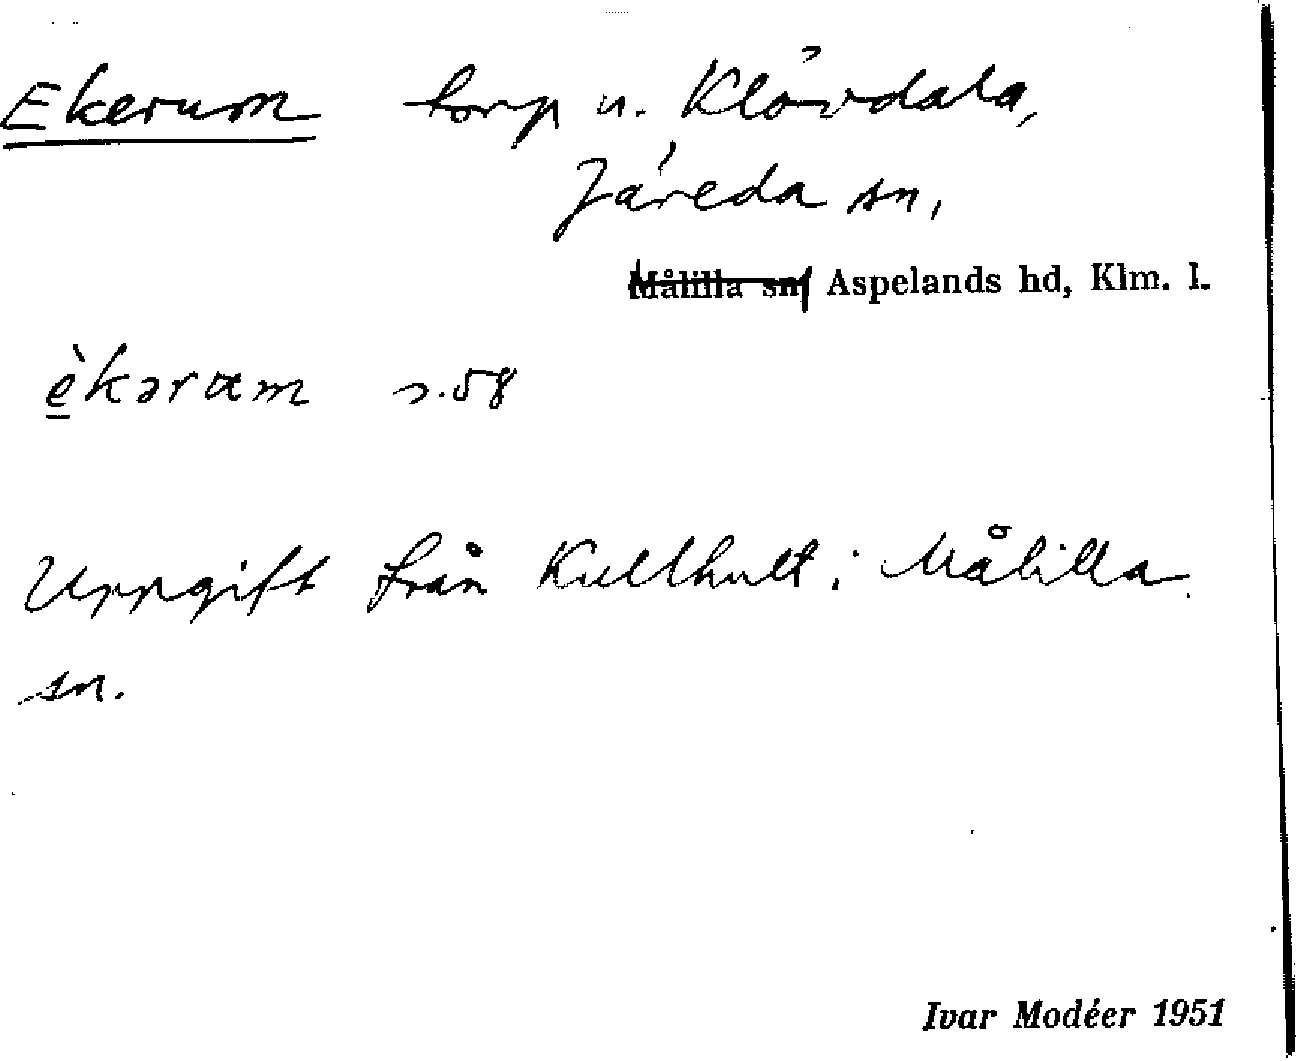 Ekerum torp u. Klövdala,
Järeda sn,
Målilla sn, Aspelands hd, Klm. l.
è̱kəram s. 58
Uppgift från Kullhult i Målilla
sn.
Ivar Modéer 1951